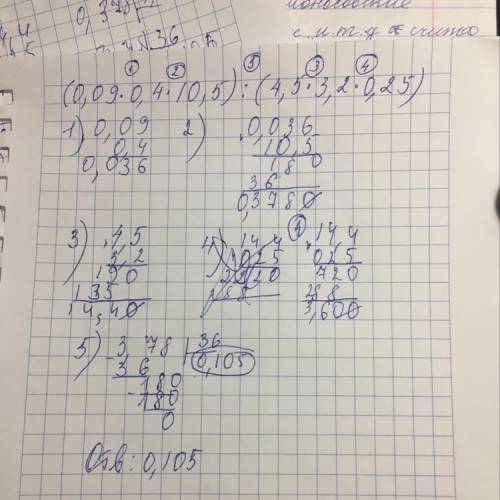 0,378
36
монософские
с.и.т.д считаю
① ② ⑤ ③ ④
(0,09·0,4·10,5):(4,5·3,2·0,25)
1) 0,09 2) 0,036
0,4 10,5
0,036 180
36
0,3780
3) 4,5 4) 14,4 ④ 14,4
3,2 0,25 0,25
90 720 720
135 288 288
14,40 3,600
5) 3,78 | 36
36 0,105
180
180
0
Отв: 0,105